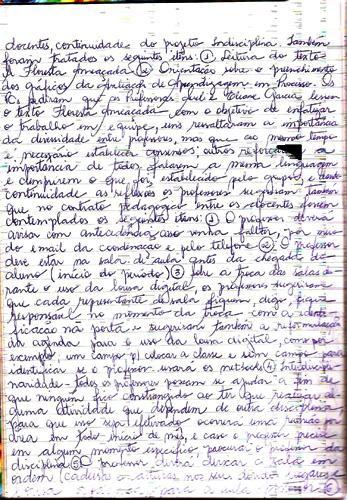 docentes, continuidade do projeto Indisciplina. Também
foram tratados os seguintes itens: ① Leitura do texto
A Floresta Ameaçada ② Orientação sobre o preenchimento
dos gráficos da Avaliação de Aprendizagem em Processo.
pediram que as Professoras e Eliane Garcia lessem
o texto Floresta Ameaçada com o objetivo de enfatizar
o trabalho em equipe, uns ressaltaram a importância
da diversidade entre professores, mas que ao mesmo tempo
é necessário estabelecer consensos; outros reforçaram a
importância de todos falarem a mesma linguagem
e cumprirem o que é estabelecido pelo grupo, e dando
continuidade as reflexões os professores sugeriram também
que no contrato pedagógico entre os docentes fossem
contemplados os seguintes itens: ① O professor deverá
avisar com antecedência caso venha faltar, por meio
do email da coordenação e pelo telefone ② O professor
deve estar na sala de aula antes da chegada do
aluno (início do período) ③ Sobre a troca das salas du-
rante o uso da lousa digital, os professores sugeriram
que cada representante de sala fiquem, digo, fique
responsável no momento da troca com a identi-
ficação na porta e sugeriram também a reformulação
da agenda para o uso da lousa digital, como por
exemplo, um campo p/ colocar a classe e um campo para
identificar se o professor usará os netbooks ④ Interdiscipli-
naridade - todos os professores possam se ajudar a fim de
que ninguém fique constrangido ao ter que realizar al-
guma atividade que dependem de outra disciplina,
para que isso seja efetivado ocorrerá uma reunião por
área em todo início de mês, e caso o professor precise
em algum momento específico, procurar o professor da
disciplina ⑤ O professor deverá deixar a sala em
ordem (cadeiras e carteiras nos seus devidos lugares e